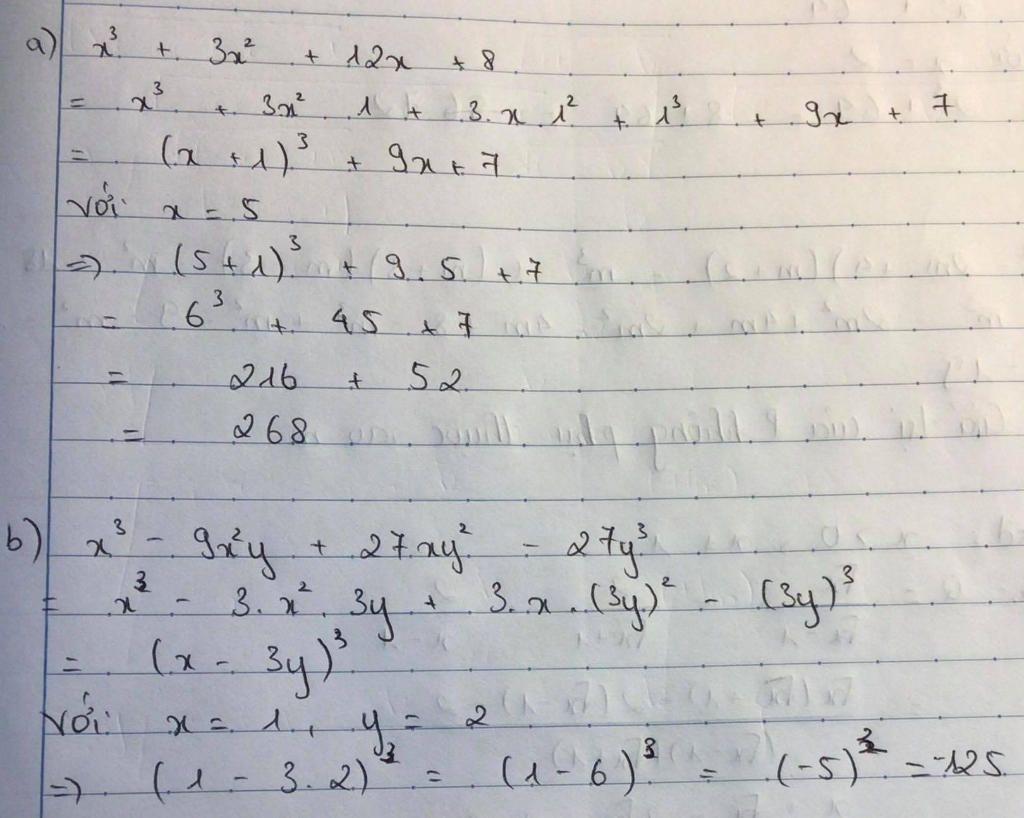 a) x³ + 3x² + 12x + 8
= x³ + 3x² 1 + 3. x 1² + 1³ + 9x + 7
= (x + 1)³ + 9x + 7
Với: x = 5
=> (5 + 1)³ + 9. 5 + 7
= 6³ + 45 + 7
= 216 + 52
= 268
b) x³ - 9x²y + 27xy² - 27y³
= x³ - 3. x². 3y + 3. x. (3y)² - (3y)³
= (x - 3y)³
Với: x = 1, y = 2
=> (1 - 3. 2)³ = (1 - 6)³ = (-5)³ = -125